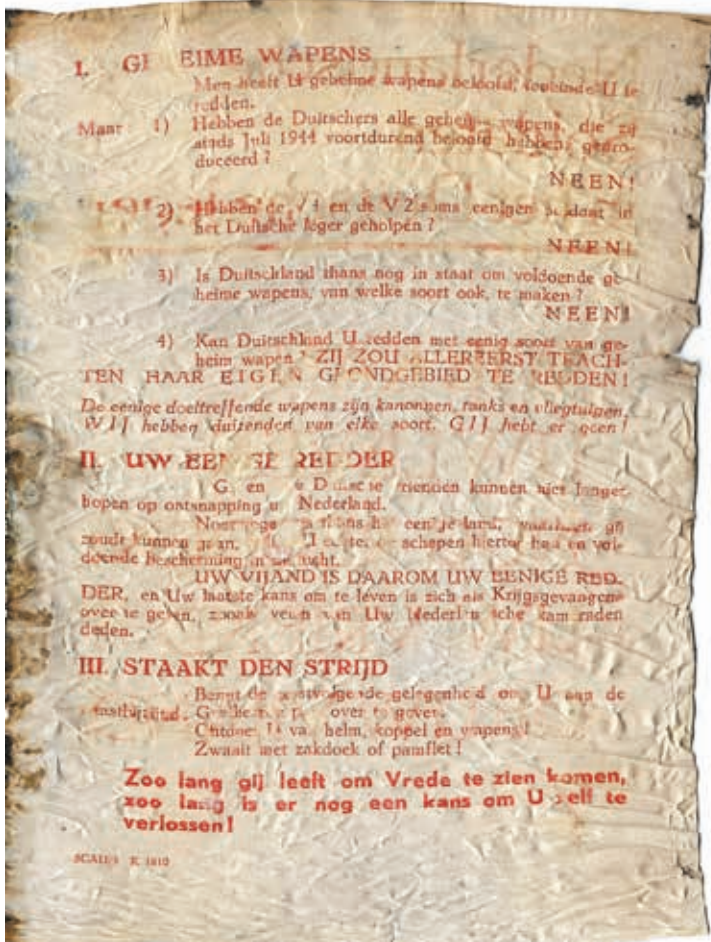 I. GEHEIME WAPENS
Men heeft U geheime wapens beloofd, teneinde U te
redden.
Maar 1) Hebben de Duitschers alle geheime wapens, die zij
sinds Juli 1944 voortdurend beloofd hebben, gepro-
duceerd ?
NEEN!
2) Hebben de V 1 en de V 2 soms eenigen soldaat in
het Duitsche leger geholpen ?
NEEN!
3) Is Duitschland thans nog in staat om voldoende ge-
heime wapens, van welke soort ook, te maken ?
NEEN!
4) Kan Duitschland U redden met eenig soort van ge-
heim wapen ? ZIJ ZOU ALLEREERST TRACH-
TEN HAAR EIGEN GRONDGEBIED TE REDDEN!
De eenige doeltreffende wapens zijn kanonnen, tanks en vliegtuigen.
WIJ hebben duizenden van elke soort. GIJ hebt er geen!
II. UW EENIGE REDDER
G en Duitsche vrienden kunnen niet langer
hopen op ontsnapping u Nederland.
een land, gij
zoudt kunnen gaan. schepen hiertoe en vol-
doende bescherming in de lucht.
UW VIJAND IS DAAROM UW EENIGE RED-
DER, en Uw laatste kans om te leven is zich als Krijgsgevangene
over te geven, zooals velen van Uw Nederlandsche kameraden
deden.
III. STAAKT DEN STRIJD
Benut de eerstvolgende gelegenheid om U aan de
over te geven.
Ontdoet U van helm, koppel en wapens!
Zwaait met zakdoek of pamflet!
Zoo lang gij leeft om Vrede te zien komen,
zoo lang is er nog een kans om U zelf te
verlossen!
K 1810